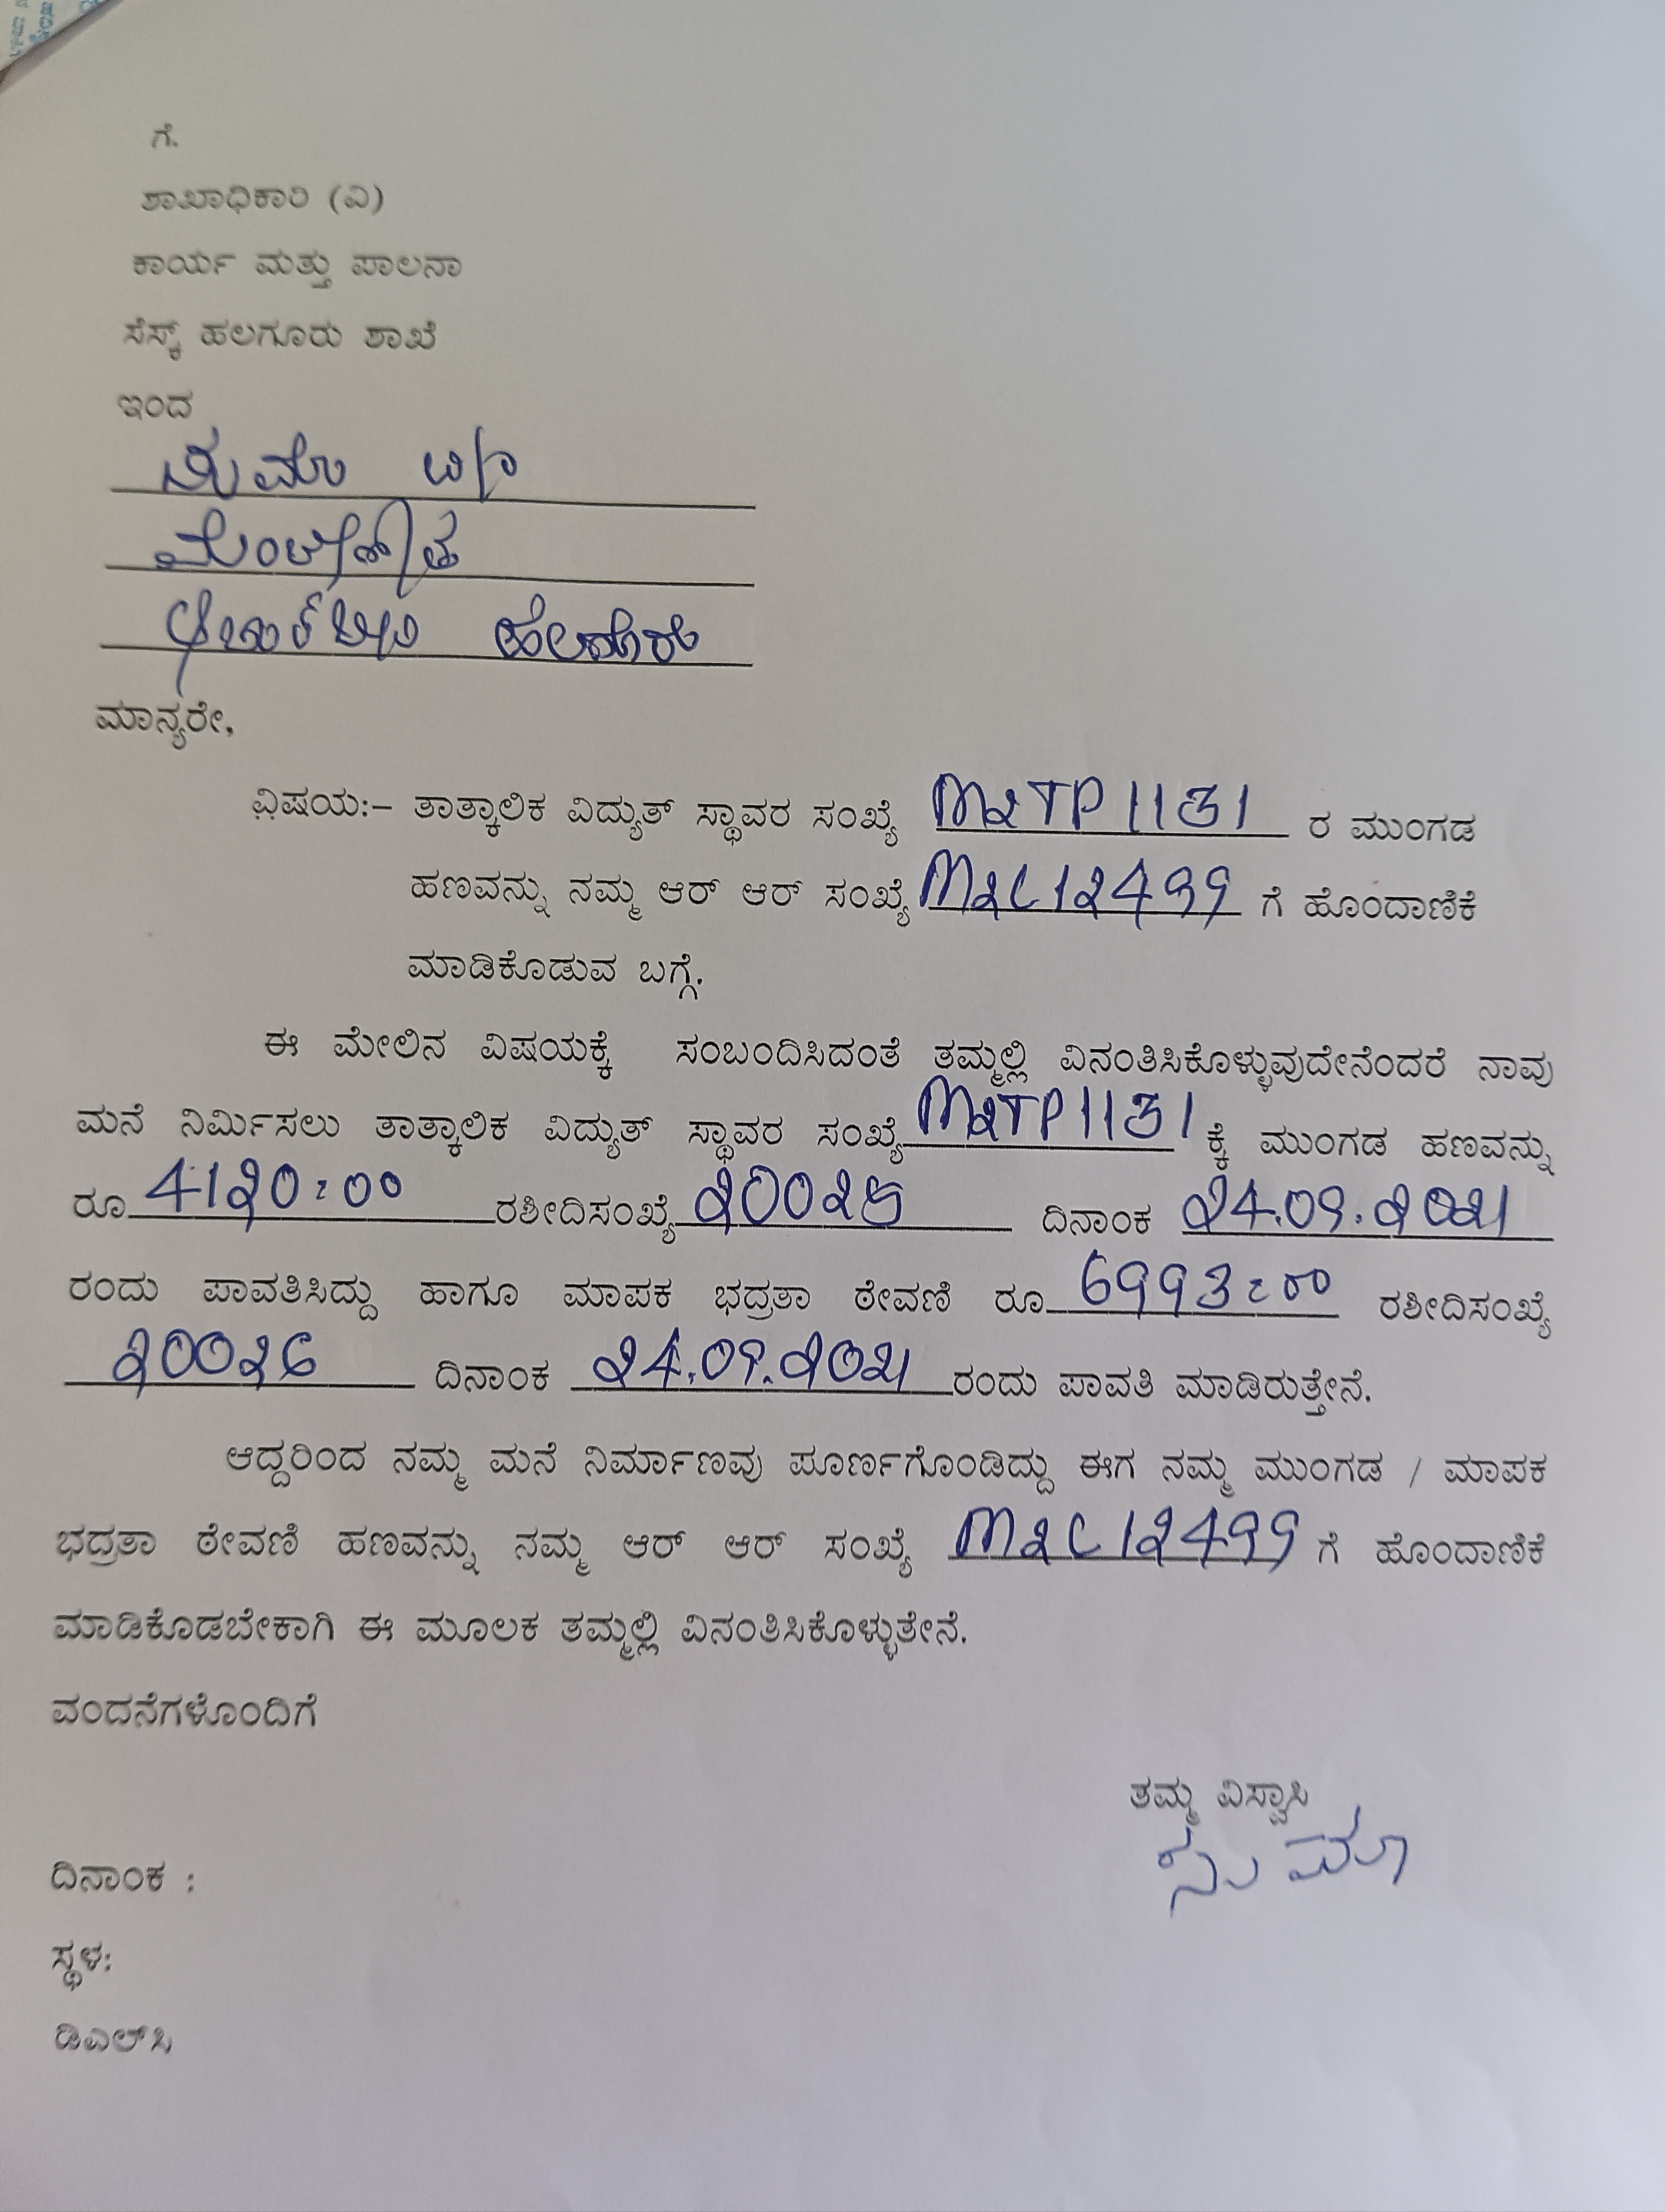 ಗೆ.
ಶಾಖಾಧಿಕಾರಿ (ವಿ)
ಕಾರ್ಯ ಮತ್ತು ಪಾಲನಾ
ಸೆಸ್ಕ್ ಹಲಗೂರು ಶಾಖೆ
ಇಂದ
ಸುಮಾ
ಮಾನ್ಯರೇ,
ವಿಷಯ:– ತಾತ್ಕಾಲಿಕ ವಿದ್ಯುತ್ ಸ್ಥಾವರ ಸಂಖ್ಯೆ M2TP1131 ರ ಮುಂಗಡ
ಹಣವನ್ನು ನಮ್ಮ ಆರ್ ಆರ್ ಸಂಖ್ಯೆ M2L12499 ಗೆ ಹೊಂದಾಣಿಕೆ
ಮಾಡಿಕೊಡುವ ಬಗ್ಗೆ.
ಈ ಮೇಲಿನ ವಿಷಯಕ್ಕೆ ಸಂಬಂದಿಸಿದಂತೆ ತಮ್ಮಲ್ಲಿ ವಿನಂತಿಸಿಕೊಳ್ಳುವುದೇನೆಂದರೆ ನಾವು
ಮನೆ ನಿರ್ಮಿಸಲು ತಾತ್ಕಾಲಿಕ ವಿದ್ಯುತ್ ಸ್ಥಾವರ ಸಂಖ್ಯೆ M2TP1131 ಕ್ಕೆ ಮುಂಗಡ ಹಣವನ್ನು
ರೂ 4120=00 ರಶೀದಿಸಂಖ್ಯೆ 20025 ದಿನಾಂಕ 24.09.2021
ರಂದು ಪಾವತಿಸಿದ್ದು ಹಾಗೂ ಮಾಪಕ ಭದ್ರತಾ ಠೇವಣಿ ರೂ 6993=00 ರಶೀದಿಸಂಖ್ಯೆ
20026 ದಿನಾಂಕ 24.09.2021 ರಂದು ಪಾವತಿ ಮಾಡಿರುತ್ತೇನೆ.
ಆದ್ದರಿಂದ ನಮ್ಮ ಮನೆ ನಿರ್ಮಾಣವು ಪೂರ್ಣಗೊಂಡಿದ್ದು ಈಗ ನಮ್ಮ ಮುಂಗಡ / ಮಾಪಕ
ಭದ್ರತಾ ಠೇವಣಿ ಹಣವನ್ನು ನಮ್ಮ ಆರ್ ಆರ್ ಸಂಖ್ಯೆ M2L12499 ಗೆ ಹೊಂದಾಣಿಕೆ
ಮಾಡಿಕೊಡಬೇಕಾಗಿ ಈ ಮೂಲಕ ತಮ್ಮಲ್ಲಿ ವಿನಂತಿಸಿಕೊಳ್ಳುತೇನೆ.
ವಂದನೆಗಳೊಂದಿಗೆ
ತಮ್ಮ ವಿಸ್ವಾಸಿ
ಸುಮಾ
ದಿನಾಂಕ :
ಸ್ಥಳ:
ಡಿಎಲ್‌ಸಿ